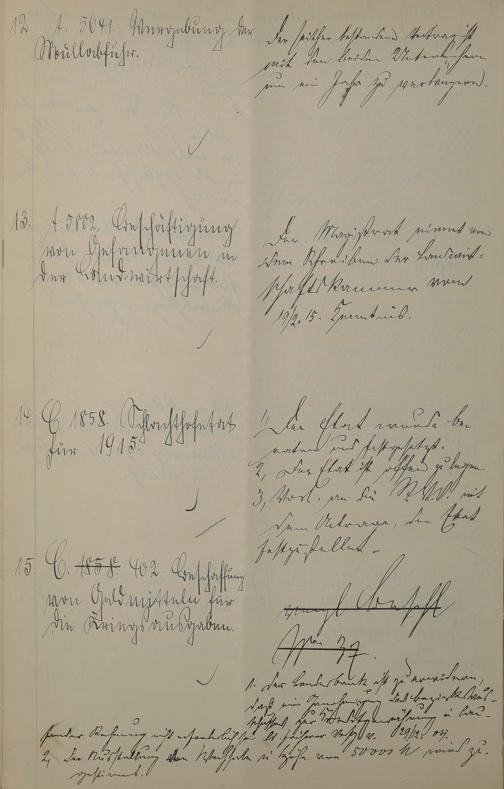 12. A. 5641. Vergebung der
Müllabfuhr.
Der seither bestandene Vertrag ist
mit den beiden Unternehmern
um ein Jahr zu verlängern.
13. A. 5802. Beschäftigung
von Gefangenen in
der Landwirtschaft.
Der Magistrat nimmt von
dem Schreiben der Landwirt-
schaftskammer vom
19/2. 15. Kenntnis.
14. C. 1858. Schlachthofetat
für 1915.
1, Der Etat wurde be-
raten und festgesetzt.
2, Der Etat ist offen zu legen.
3, Vorl. an die St.V.V. mit
dem Antrage, den Etat
festzustellen.
15 C. 1858. 402 Beschaffung
von Geldmitteln für
die Kriegsausgaben.
vergl. Beschl.
37.
1. Der Landesbank ist zu erwidern,
daß eine Genehmigung des Bezirksaus-
schusses zur Kreditgewährung in lau-
fender Rechnung nicht erforderlich sei 29/2. 04.
2, Der Ausstellung von Wechseln in Höhe von 50000 M wird zu-
gestimmt.